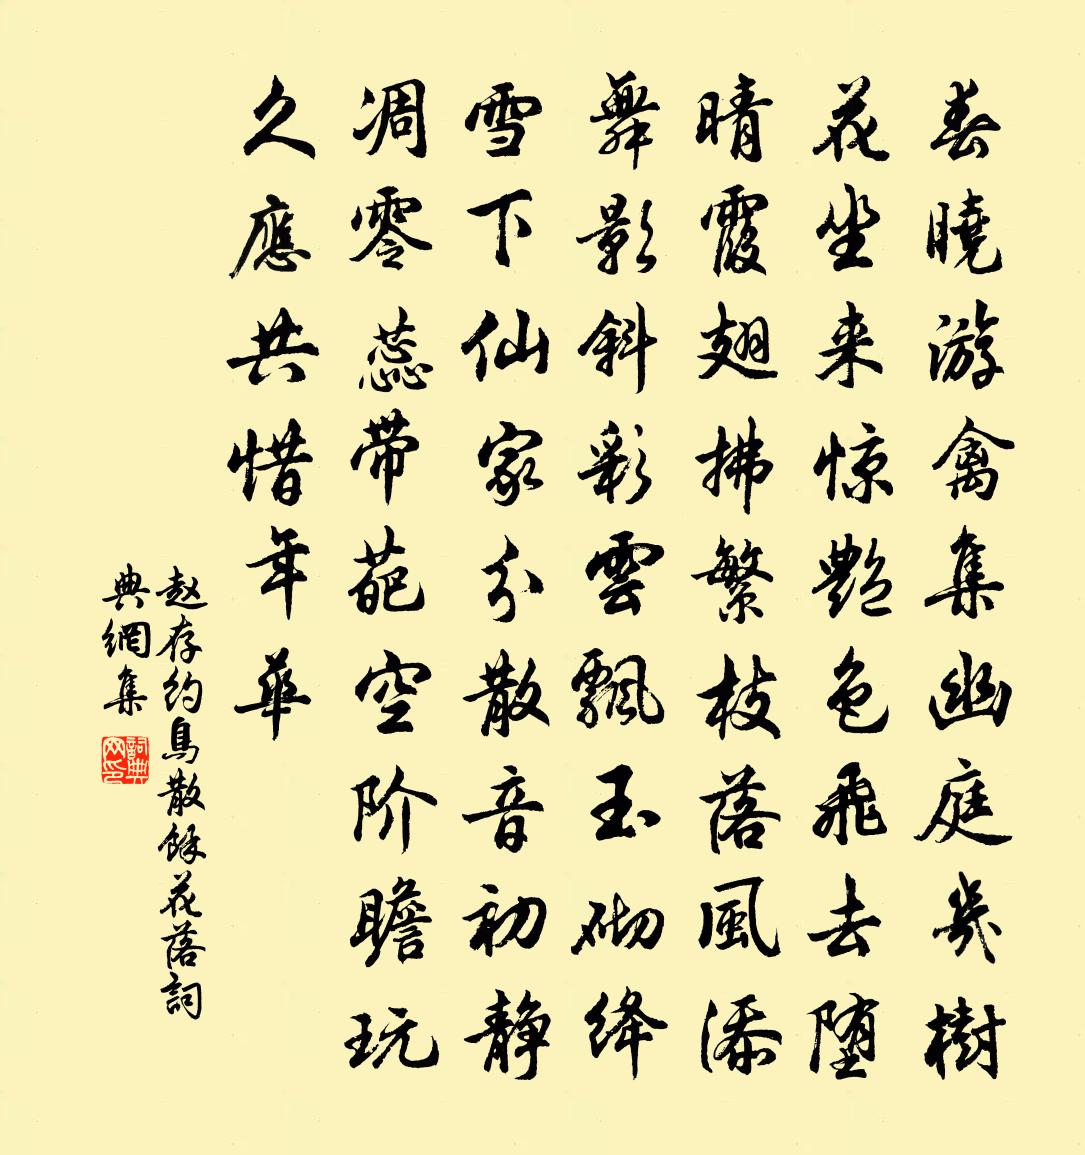 春曉游禽集幽庭幾樹
花坐来惊艷色飛去堕
晴霞翅拂繁枝落風添
舞影斜彩雲飄玉砌绛
雪下仙家分散音初静
凋零蕊带葩空阶瞻玩
久應共惜年華
赵存约鳥散餘花落詞
典網集
詞典
网印